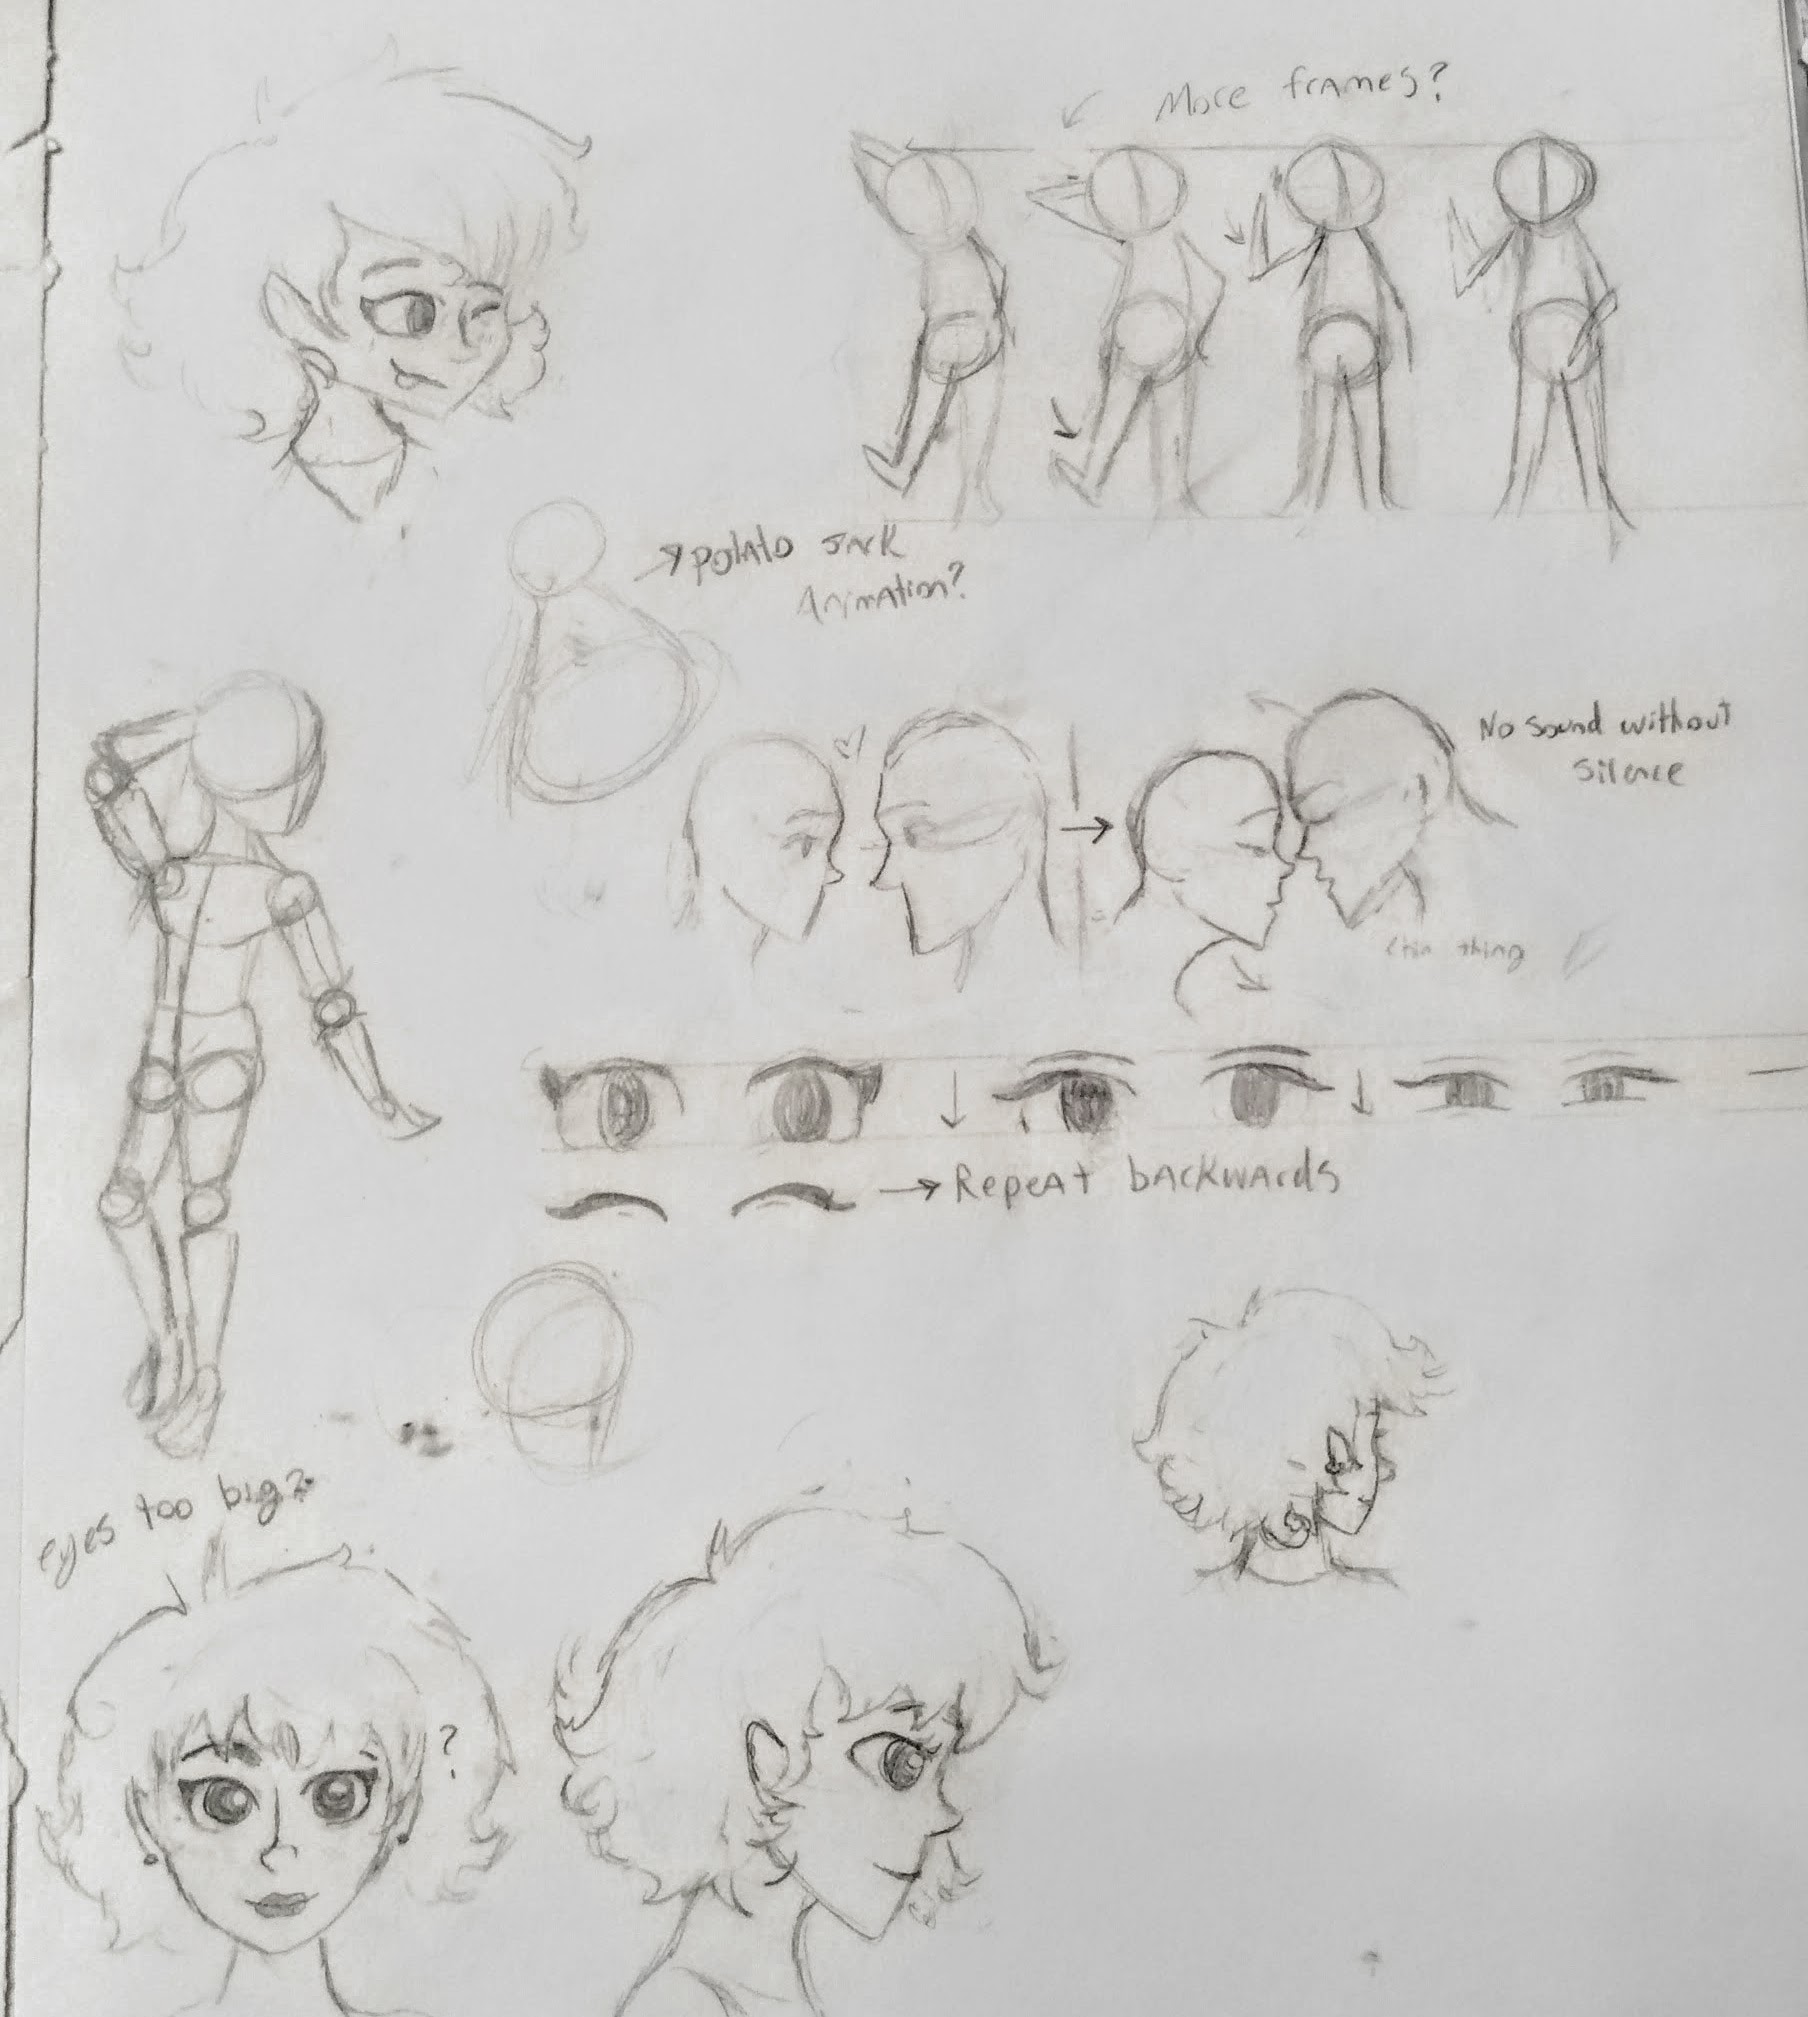 More frames?
potato sack
Animation?
No sound without
silence
thing
Repeat backwards
eyes too big?
?